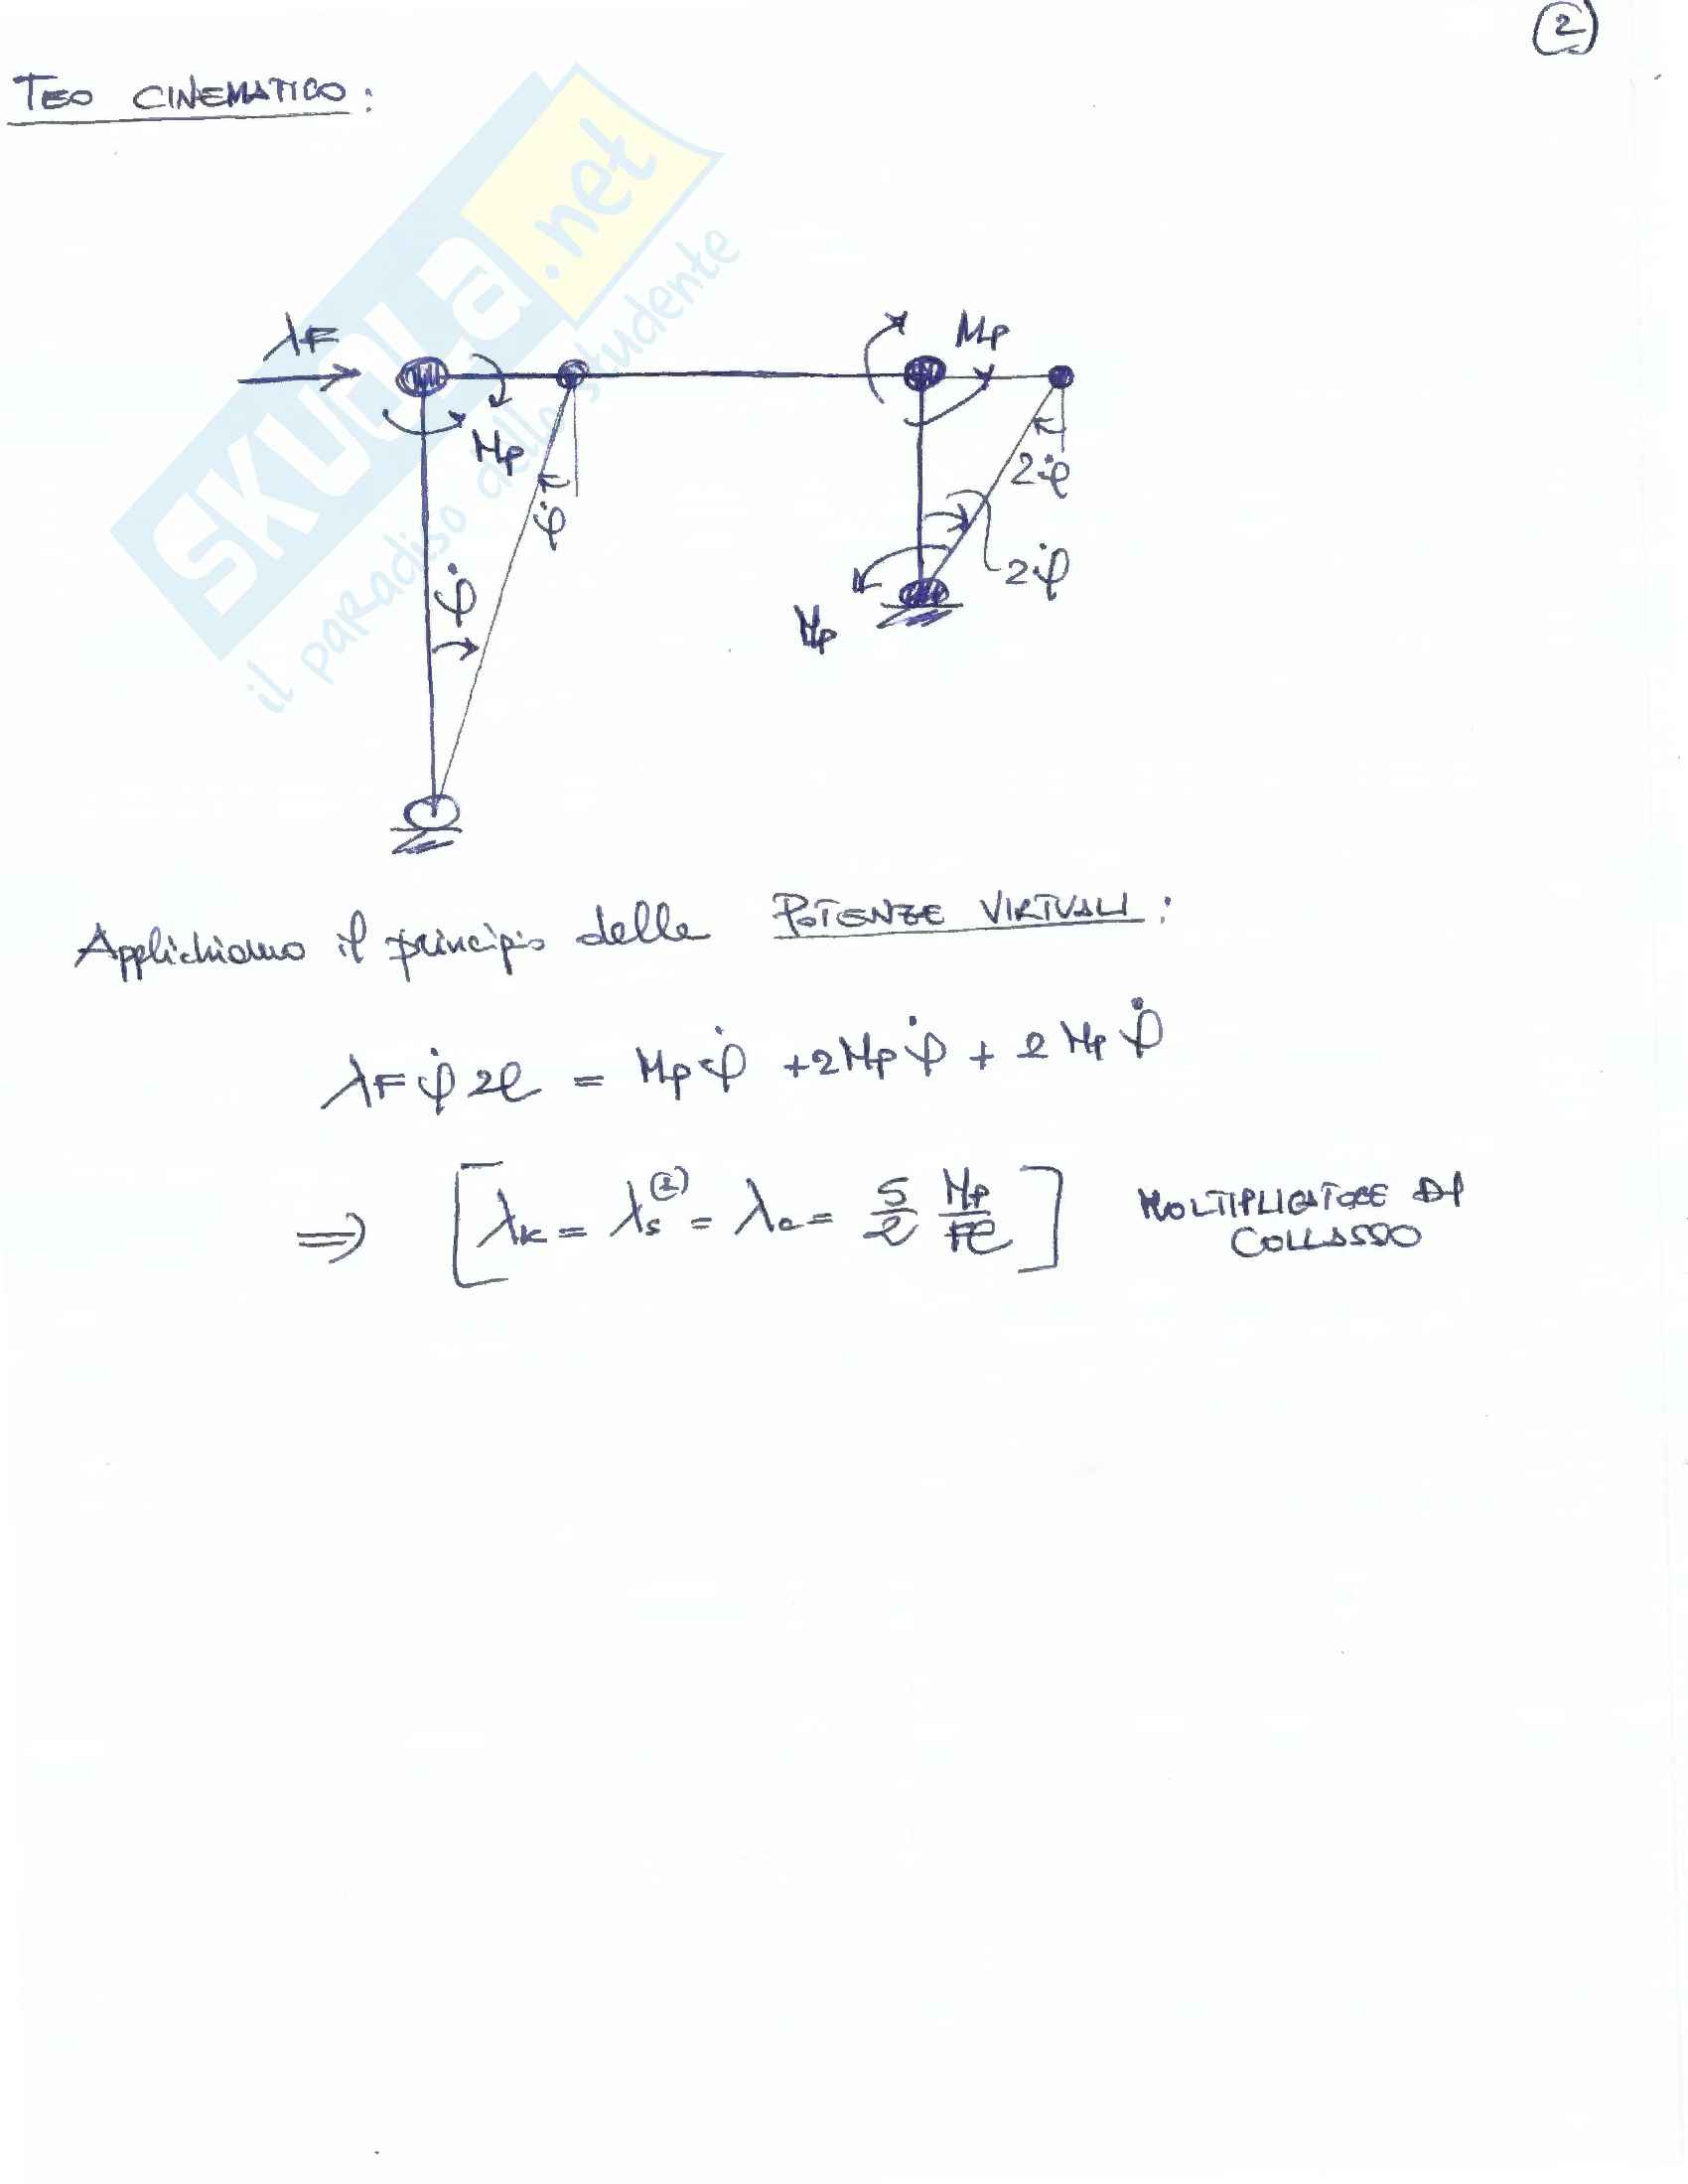 2
TEO CINEMATICO:
SKUOLA.net
il paradiso dello studente
λF
Mp
Mp
φ̇
2φ̇
φ̇
2φ̇
Mp
Applichiamo il principio delle POTENZE VIRTUALI:
λF φ̇ 2l = Mp φ̇ + 2Mp φ̇ + 2 Mp φ̇
⇒ [λk = λs^(2) = λc = 5/2 Mp/Fl] MOLTIPLICATORE DI
COLLASSO